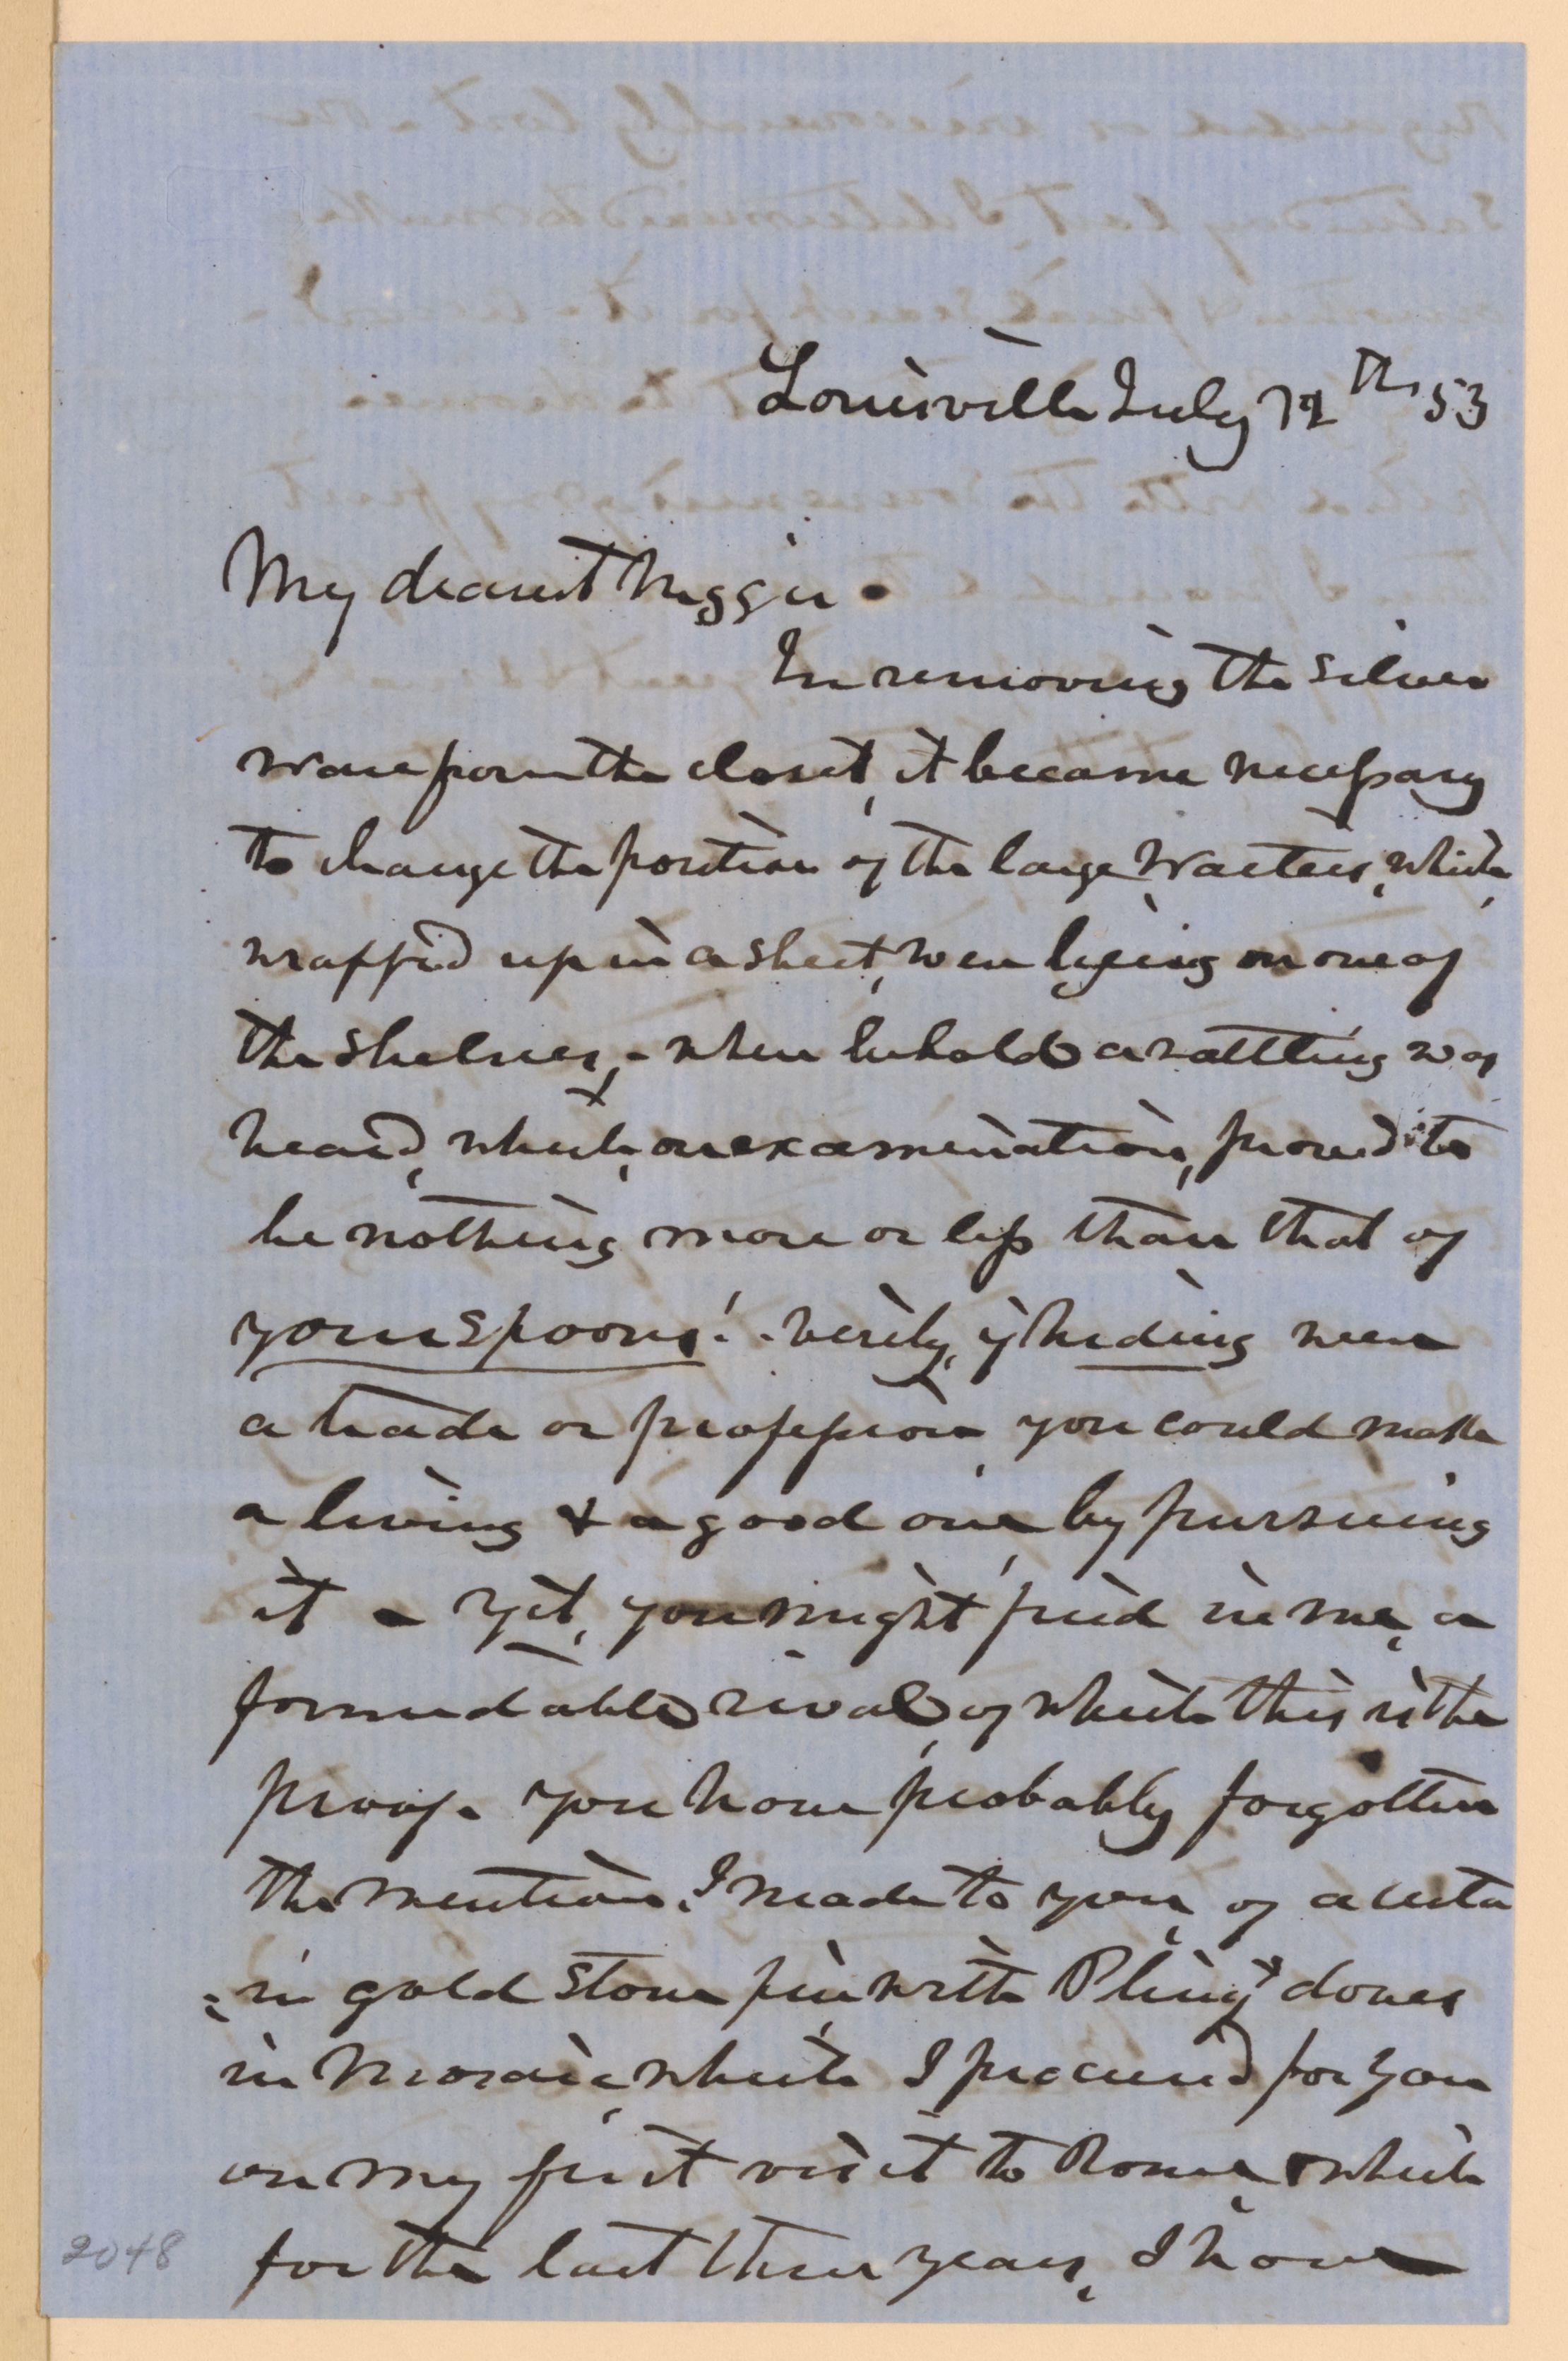 Louisville July 12th 53
My dearest
In removing the silver
ware from the closet, it became necessary
to change the position of the large Waiters, which,
wrapped up in a sheet, were lying on one of
the shelves, - when behold a rattling was
heard, which, on examination, proved to
be nothing more or less than that of
your spoons! - verily, if hiding were
a trade or profession, you could make
a living & a good one, by pursuing
it - yet, you might find in me, a
formidable rival, of which this is the
proof. You have probably forgotten
the mention, I made to you, of a certa
=in gold stone pin, with Pliny's doves
in Mosaic, which I procured for you
on my first visit to Rome, & which
for the last three years, I have
2048